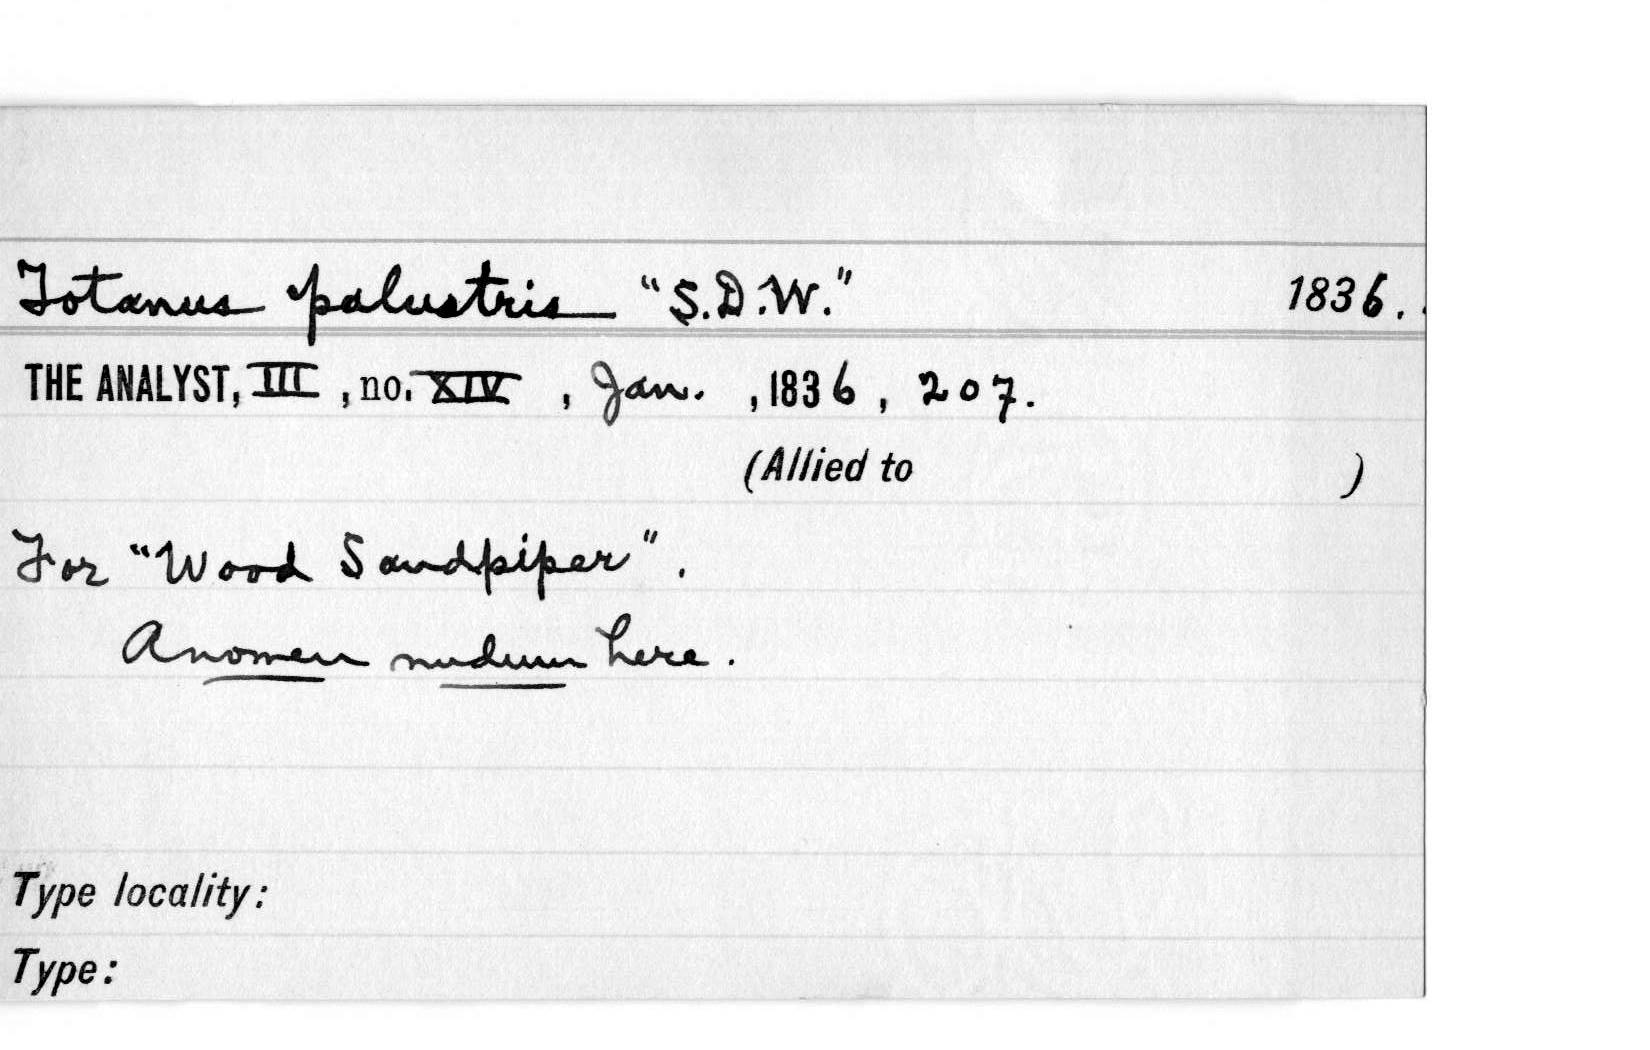 Totanus palustris "S.D.W." 1836.
THE ANALYST, III, no. XIV, Jan., 1836, 207.
(Allied to )
For "Wood Sandpiper".
A nomen nudum here.
Type locality:
Type: